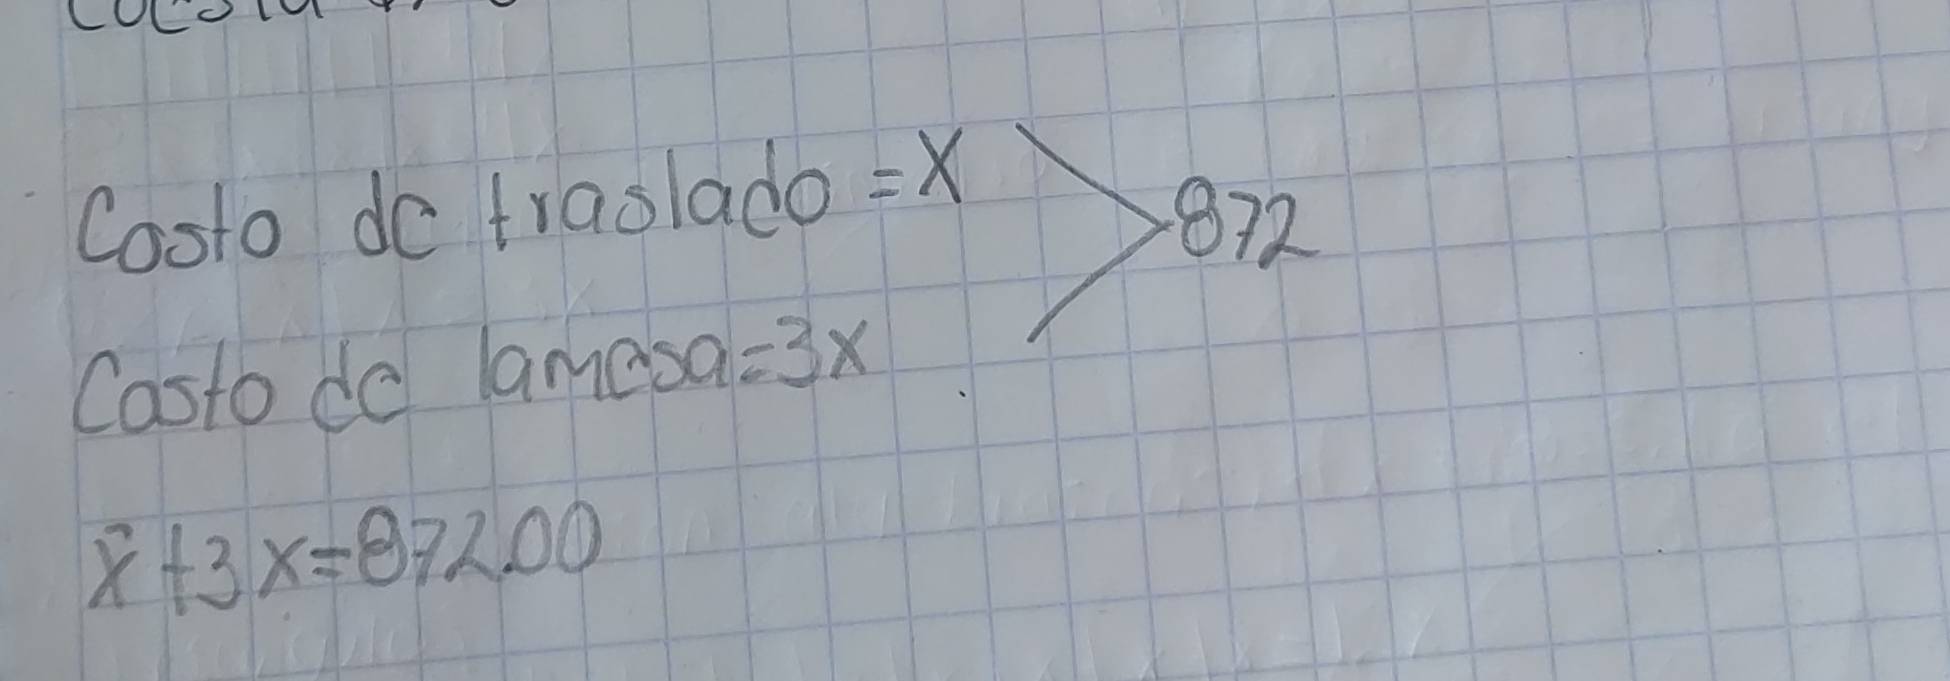 Costo de traslado = X
872
Costo de lamesa = 3x
x + 3x = 872.00